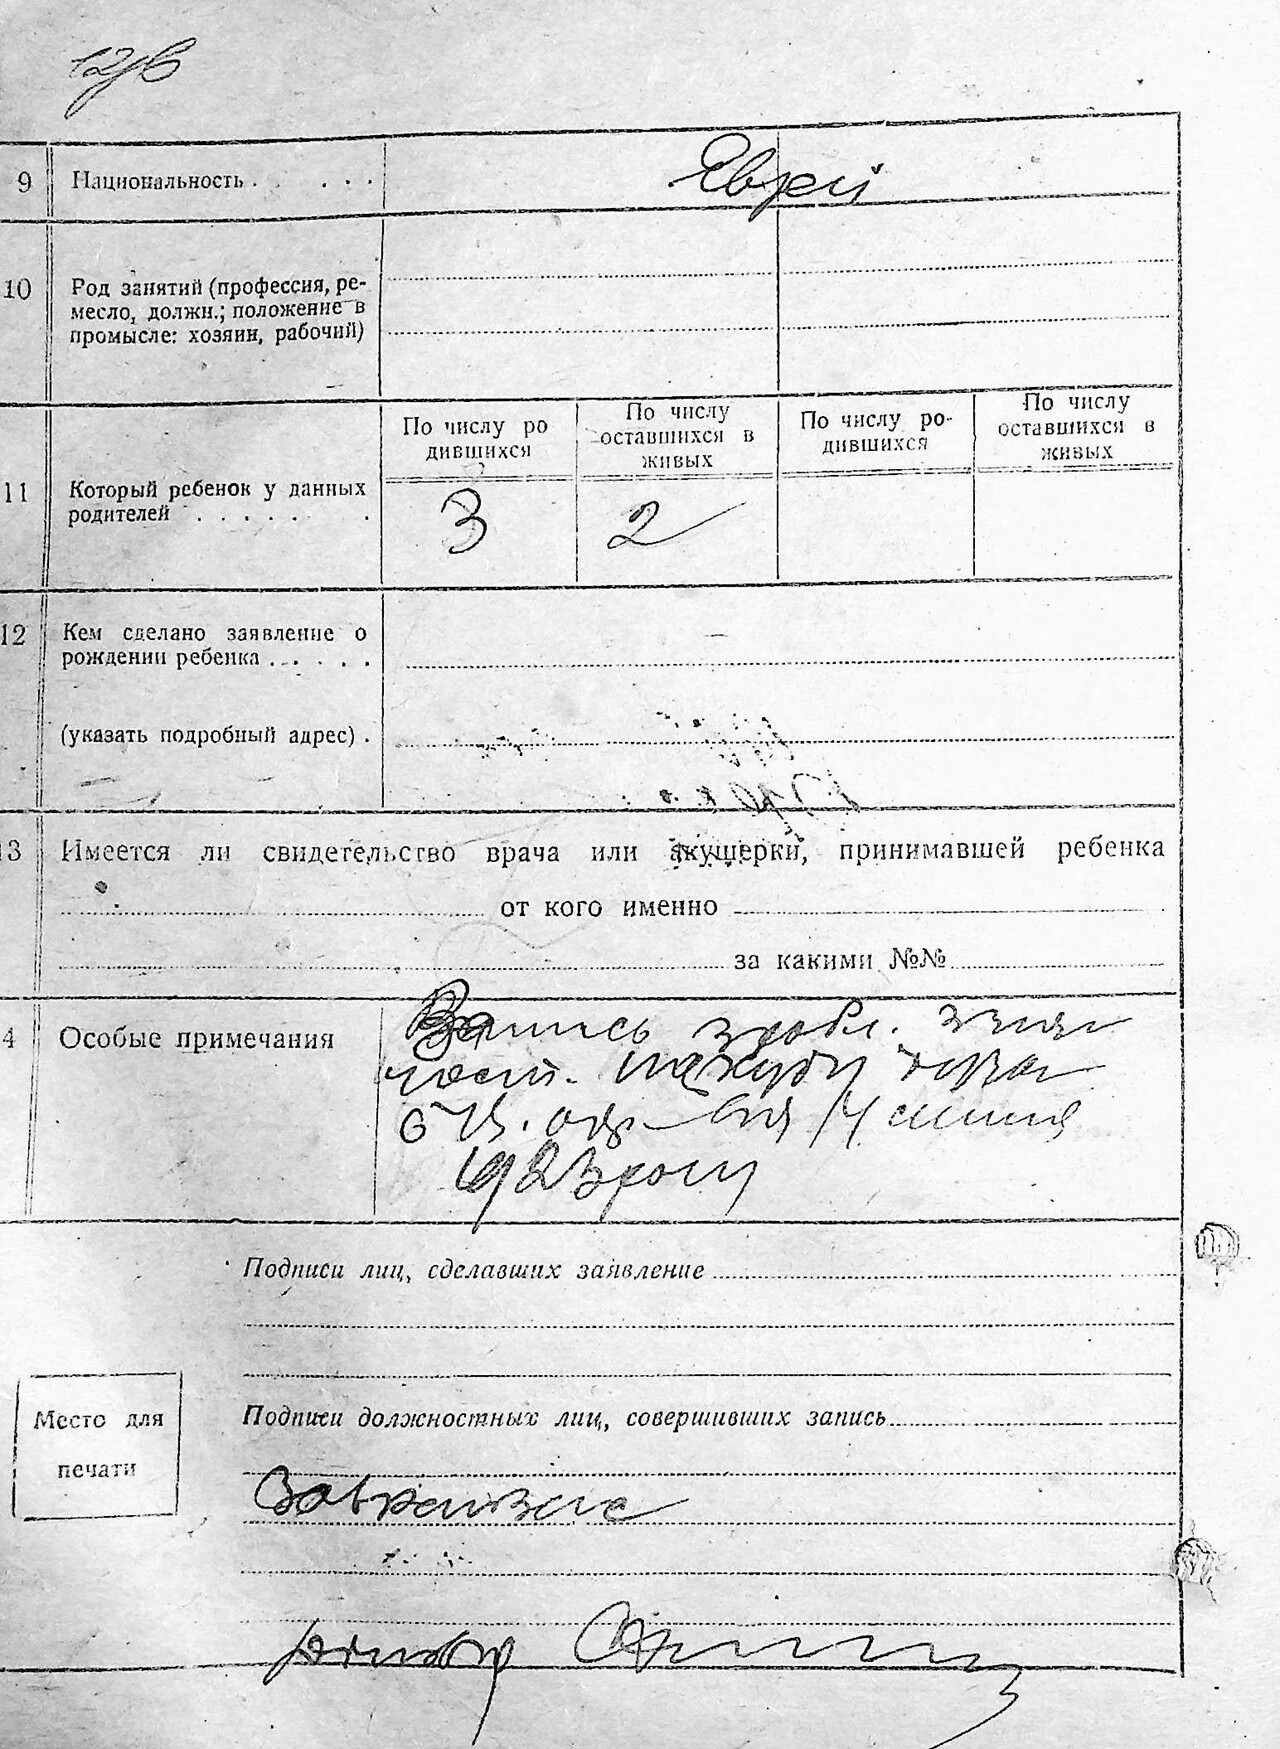 9 Национальность . . . . . Еврей
10 Род занятий (профессия, ре-
месло, должн.; положение в
промысле: хозяин, рабочий)
По числу ро
дившихся
По числу
оставшихся в
живых
По числу ро-
дившихся
По числу
оставшихся в
живых
11 Который ребенок у данных
родителей . . . . . .
3 2
12 Кем сделано заявление о
рождении ребенка . . . . .
(указать подробный адрес) .
13 Имеется ли свидетельство врача или акушерки, принимавшей ребенка
от кого именно
за какими №№
4 Особые примечания
Запись
14
1923 року
Подписи лиц, сделавших заявление
Место для
печати
Подписи должностных лиц, совершивших запись